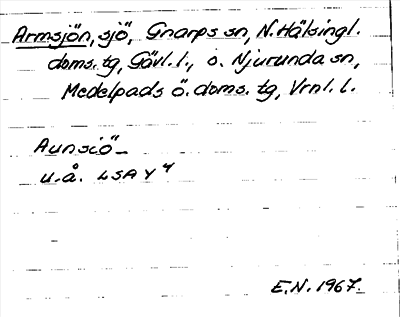 Armsjön, sjö, Gnarps sn, N. Hälsingl.
doms. tg, Gävl. l., o. Njurunda sn,
Medelpads ö. doms. tg, Vrnl. l.
Aunsiö
u.å. LSA Y 4
E.N. 1967.